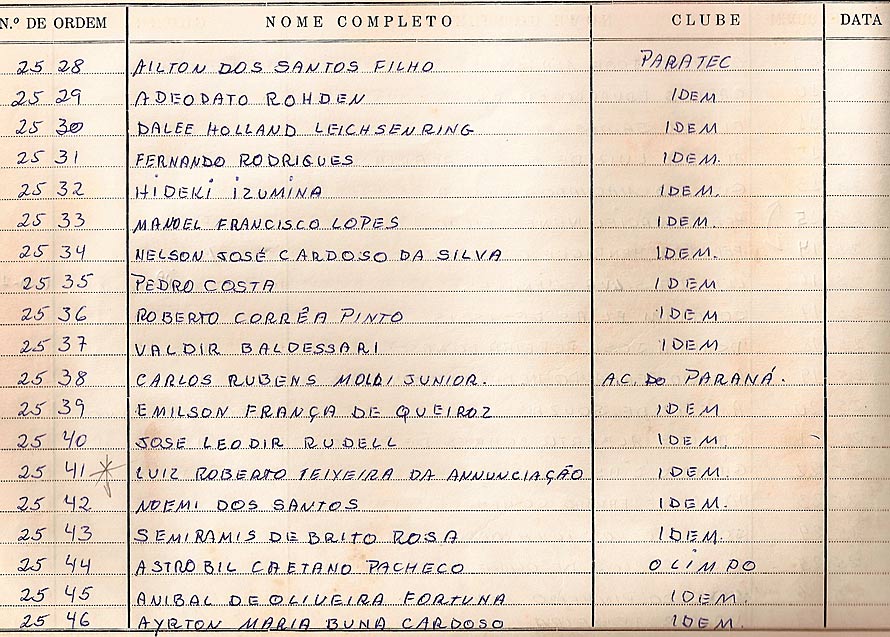 N.º DE ORDEM NOME COMPLETO CLUBE DATA
25 28 AILTON DOS SANTOS FILHO PARATEC
25 29 ADEODATO ROHDEN IDEM
25 30 DALEE HOLLAND LEICHSENRING IDEM
25 31 FERNANDO RODRIGUES IDEM.
25 32 HIDEKI IZUMINA IDEM.
25 33 MANOEL FRANCISCO LOPES IDEM.
25 34 NELSON JOSÉ CARDOSO DA SILVA IDEM.
25 35 PEDRO COSTA IDEM
25 36 ROBERTO CORRÊA PINTO IDEM
25 37 VALDIR BALDESSARI IDEM
25 38 CARLOS RUBENS MOLDI JUNIOR. A.C. DO PARANÁ.
25 39 EMILSON FRANÇA DE QUEIROZ IDEM
25 40 JOSE LEODIR RUDELL IDEM.
25 41 * LUIZ ROBERTO TEIXEIRA DA ANNUNCIAÇÃO IDEM.
25 42 NOEMI DOS SANTOS IDEM.
25 43 SEMIRAMIS DE BRITO ROSA IDEM.
25 44 ASTROBIL CAETANO PACHECO OLIMPO
25 45 ANIBAL DE OLIVEIRA FORTUNA IDEM.
25 46 AYRTON MARIA BUNA CARDOSO IDEM.